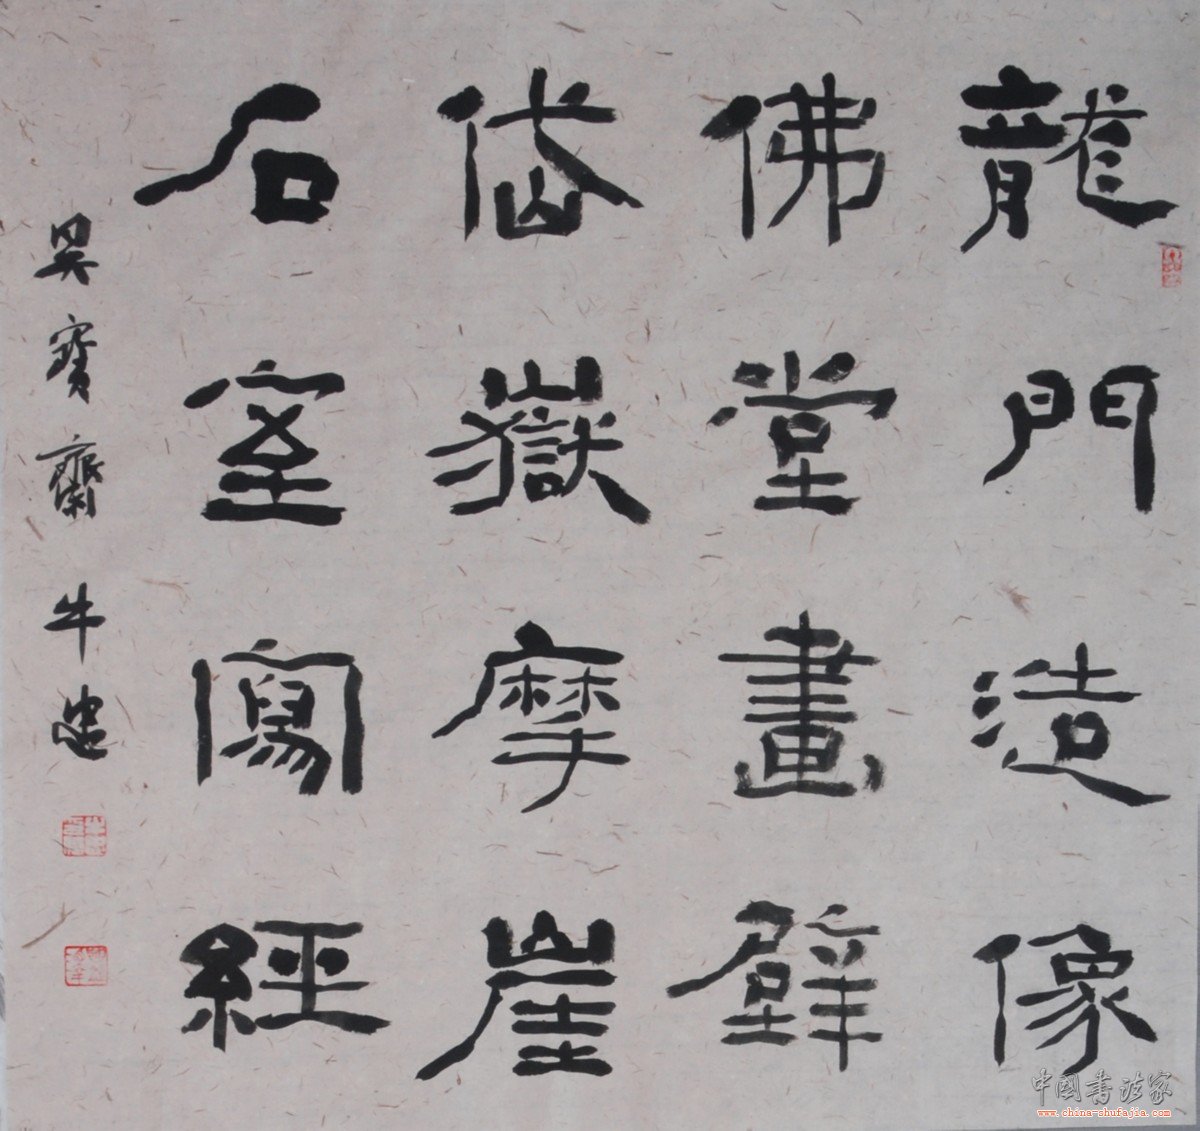 龍門造像
佛堂畫壁
岱嶽摩崖
石室寫經
寶齋牛忠
中国书法家
www.china-shufajia.com